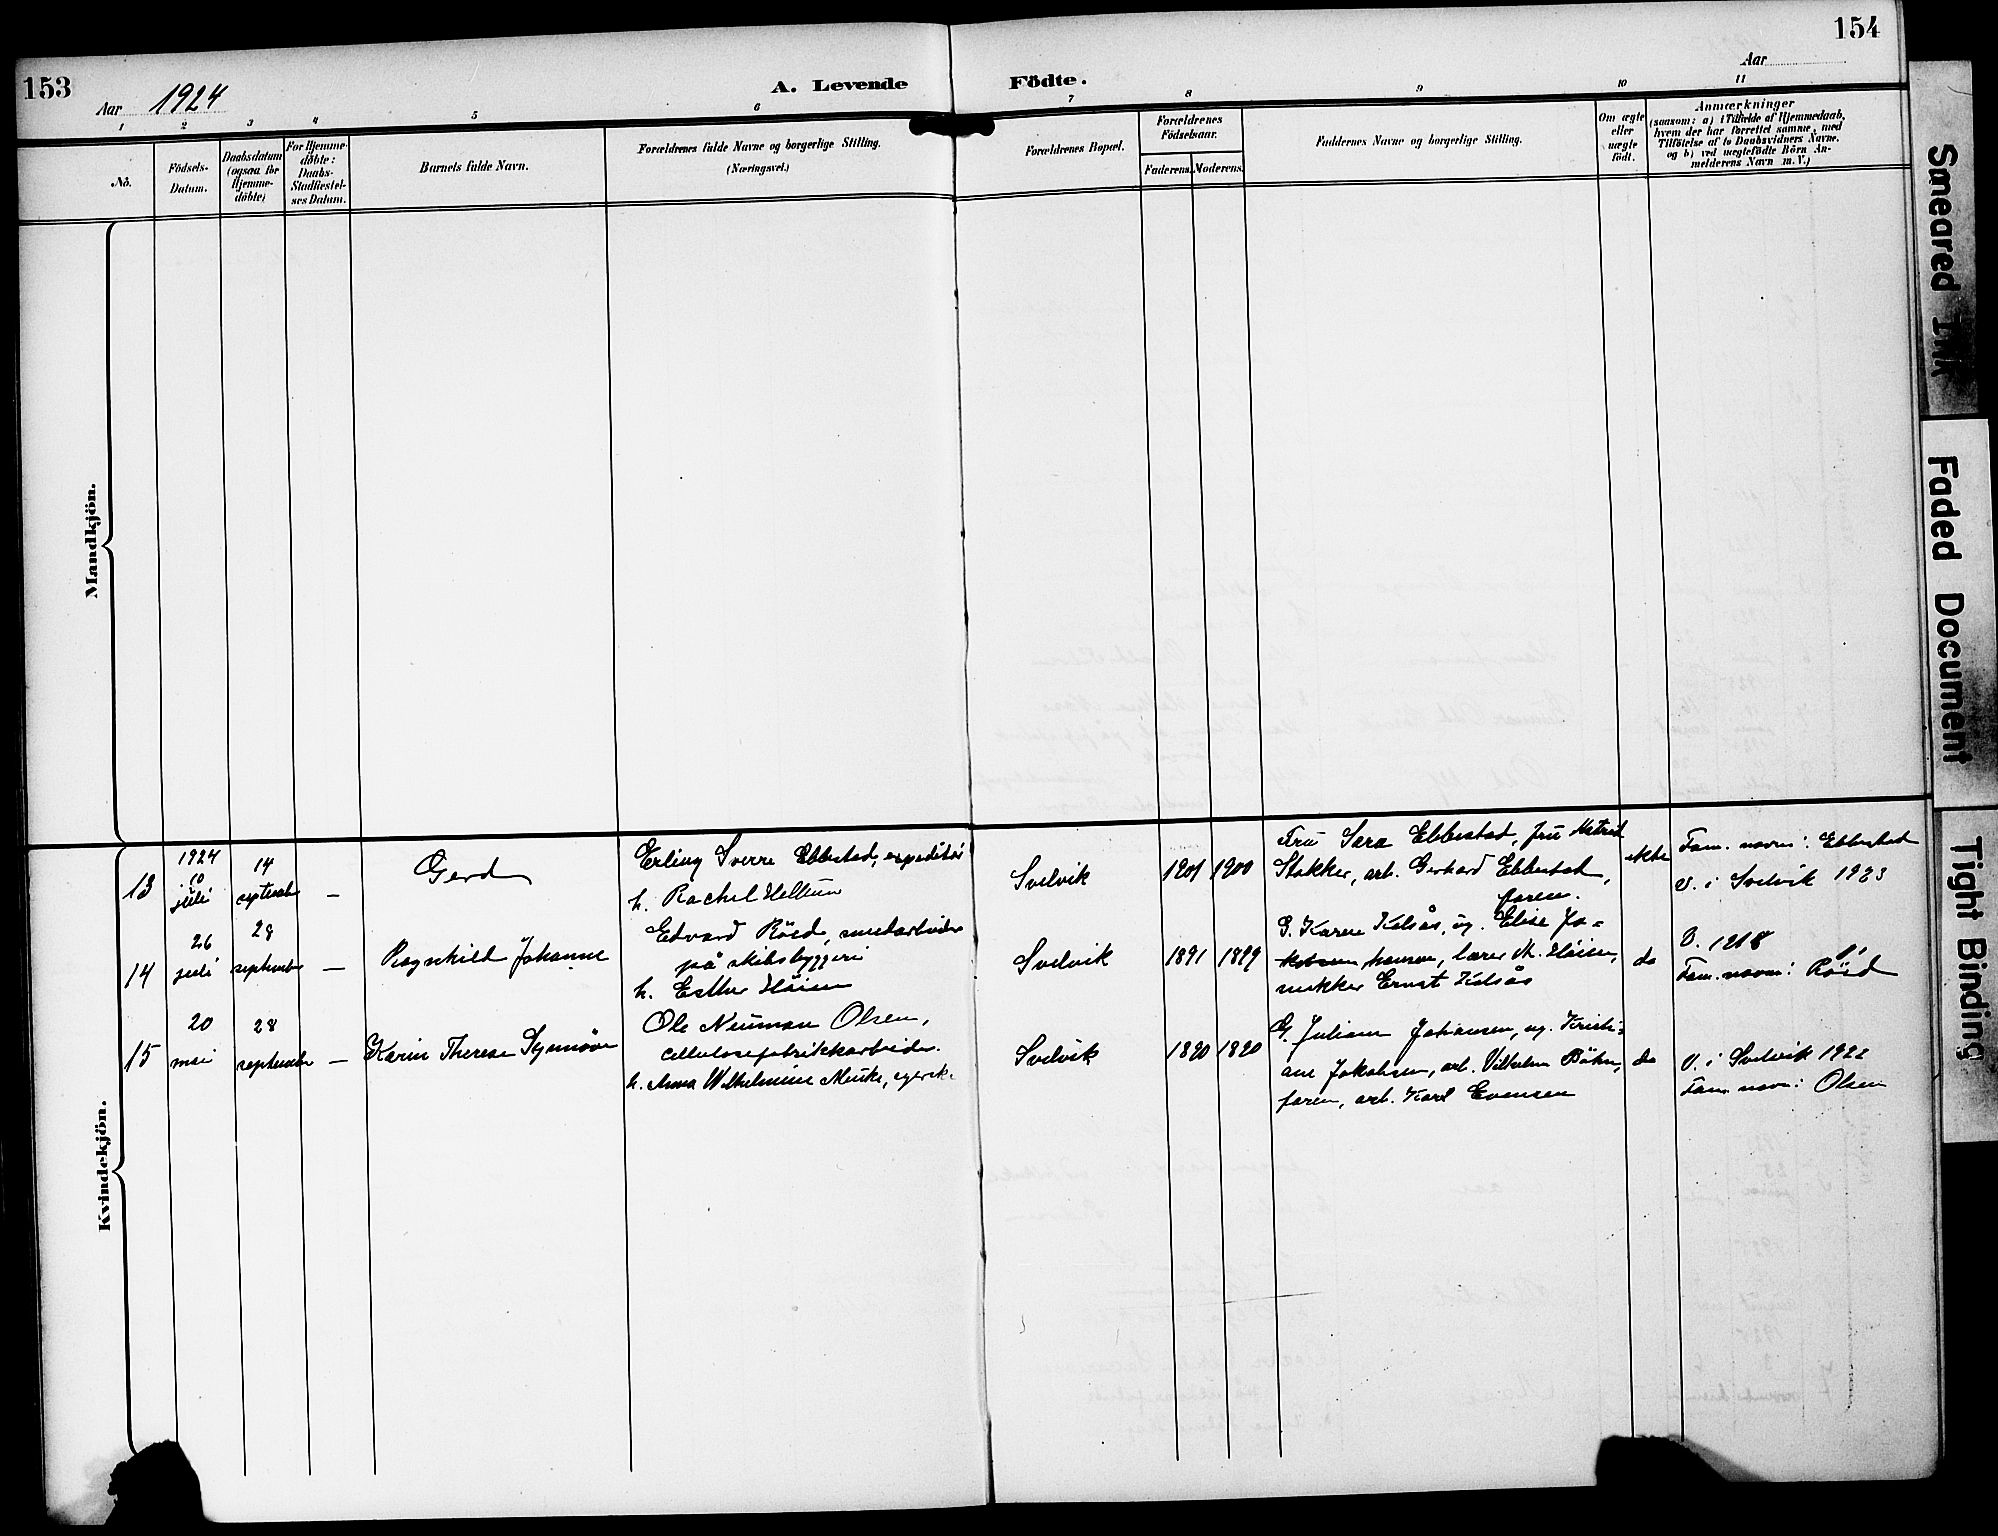 153
154
Aar 1924
A. Levende Födte.
Aar
1 2 3 4 5 6 7 8 9 10 11
No.
Födsels-
Datum.
Daabsdatum
(ogsaa for
Hjemme-
döbte)
For Hjemme-
döbte:
Daabs-
Stadfæstel-
ses Datum.
Barnets fulde Navn.
Forældrenes fulde Navne og borgerlige Stilling.
(Næringsvei.)
Forældrenes Bopæl.
Forældrenes
Födselsaar.
Faderens.
Moderens.
Faddernes Navne og borgerlige Stilling.
Om ægte
eller
uægte
födt.
Anmærkninger
(saasom: a) i Tilfælde af Hjemmedaab,
hvem der har forrettet samme, med
Tilföielse af to Daabsvidners Navne.
og b) ved uægtefödte Börn An-
melderens Navn m. V.)
Mandkjön.
Kvindekjön.
13
1924
10
juli
14
september
—
Gerd
Erling Sverre Ebbestad, expeditör
h. Rachel Hellum
Svelvik
1901 1900
Fru Sara Ebbestad, fru Astrid
Stokker, arb. Gerhard Ebbestad,
faren.
ekte
Fam. navn: Ebbestad
V. i Svelvik 1923
14
26
juli
28
september
—
Ragnhild Johanne
Edvard Röed,
på skibsbyggeri
h. Esther Höisen
Svelvik
1891 1899
G. Karen Kolsås, ug. Elise Jo-
hansen, lærer M. Höisen,
snekker Ernst Kolsås
do
V. 1918
Fam. navn: Röed
15
20
mai
28
september
—
Karin Therese Synnöve
Ole Neuman Olsen,
cellulosefabrikkarbeider.
h. Anna Wilhelmine Meuke,
Svelvik
1890 1890
G. Juliane Johansen, ug. Kristi-
ane Jakobsen, arb. Vilhelm Böhn,
faren, arb. Karl Evensen
do
V. i Svelvik 1922
Fam. navn: Olsen
Smeared Ink
Faded Document
Tight Binding